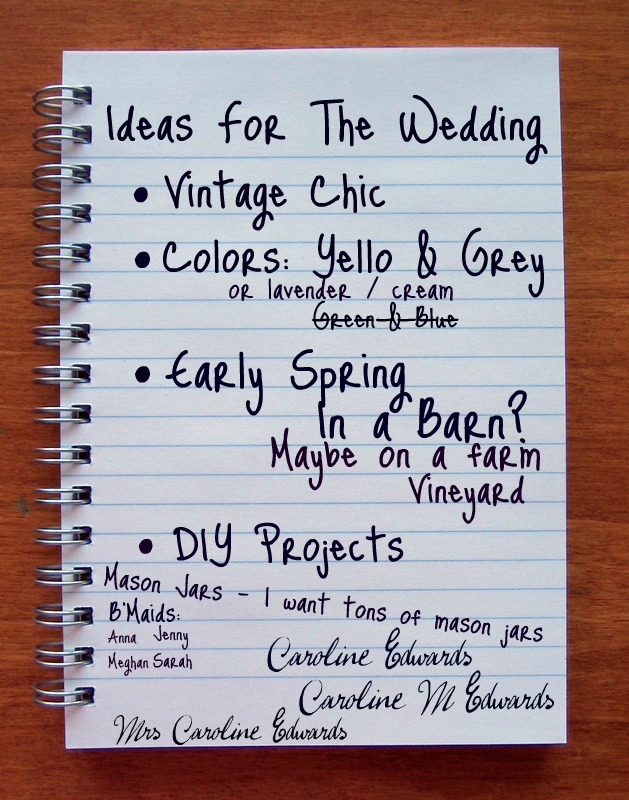 Ideas for The Wedding
• Vintage Chic
• Colors: Yello & Grey
or lavender / cream
Green & Blue
• Early Spring
In a Barn?
Maybe on a farm
Vineyard
• DIY Projects
Mason Jars - I want tons of mason jars
B'Maids:
Anna Jenny
Meghan Sarah
Caroline Edwards
Caroline M Edwards
Mrs Caroline Edwards